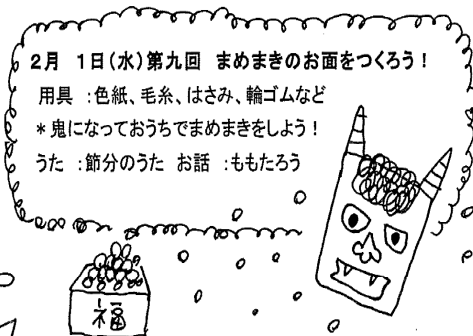 2月　1日(水)第九回　まめまきのお面をつくろう！
用具　：色紙、毛糸、はさみ、輪ゴムなど
＊鬼になっておうちでまめまきをしよう！
うた　：節分のうた　お話　：ももたろう
福